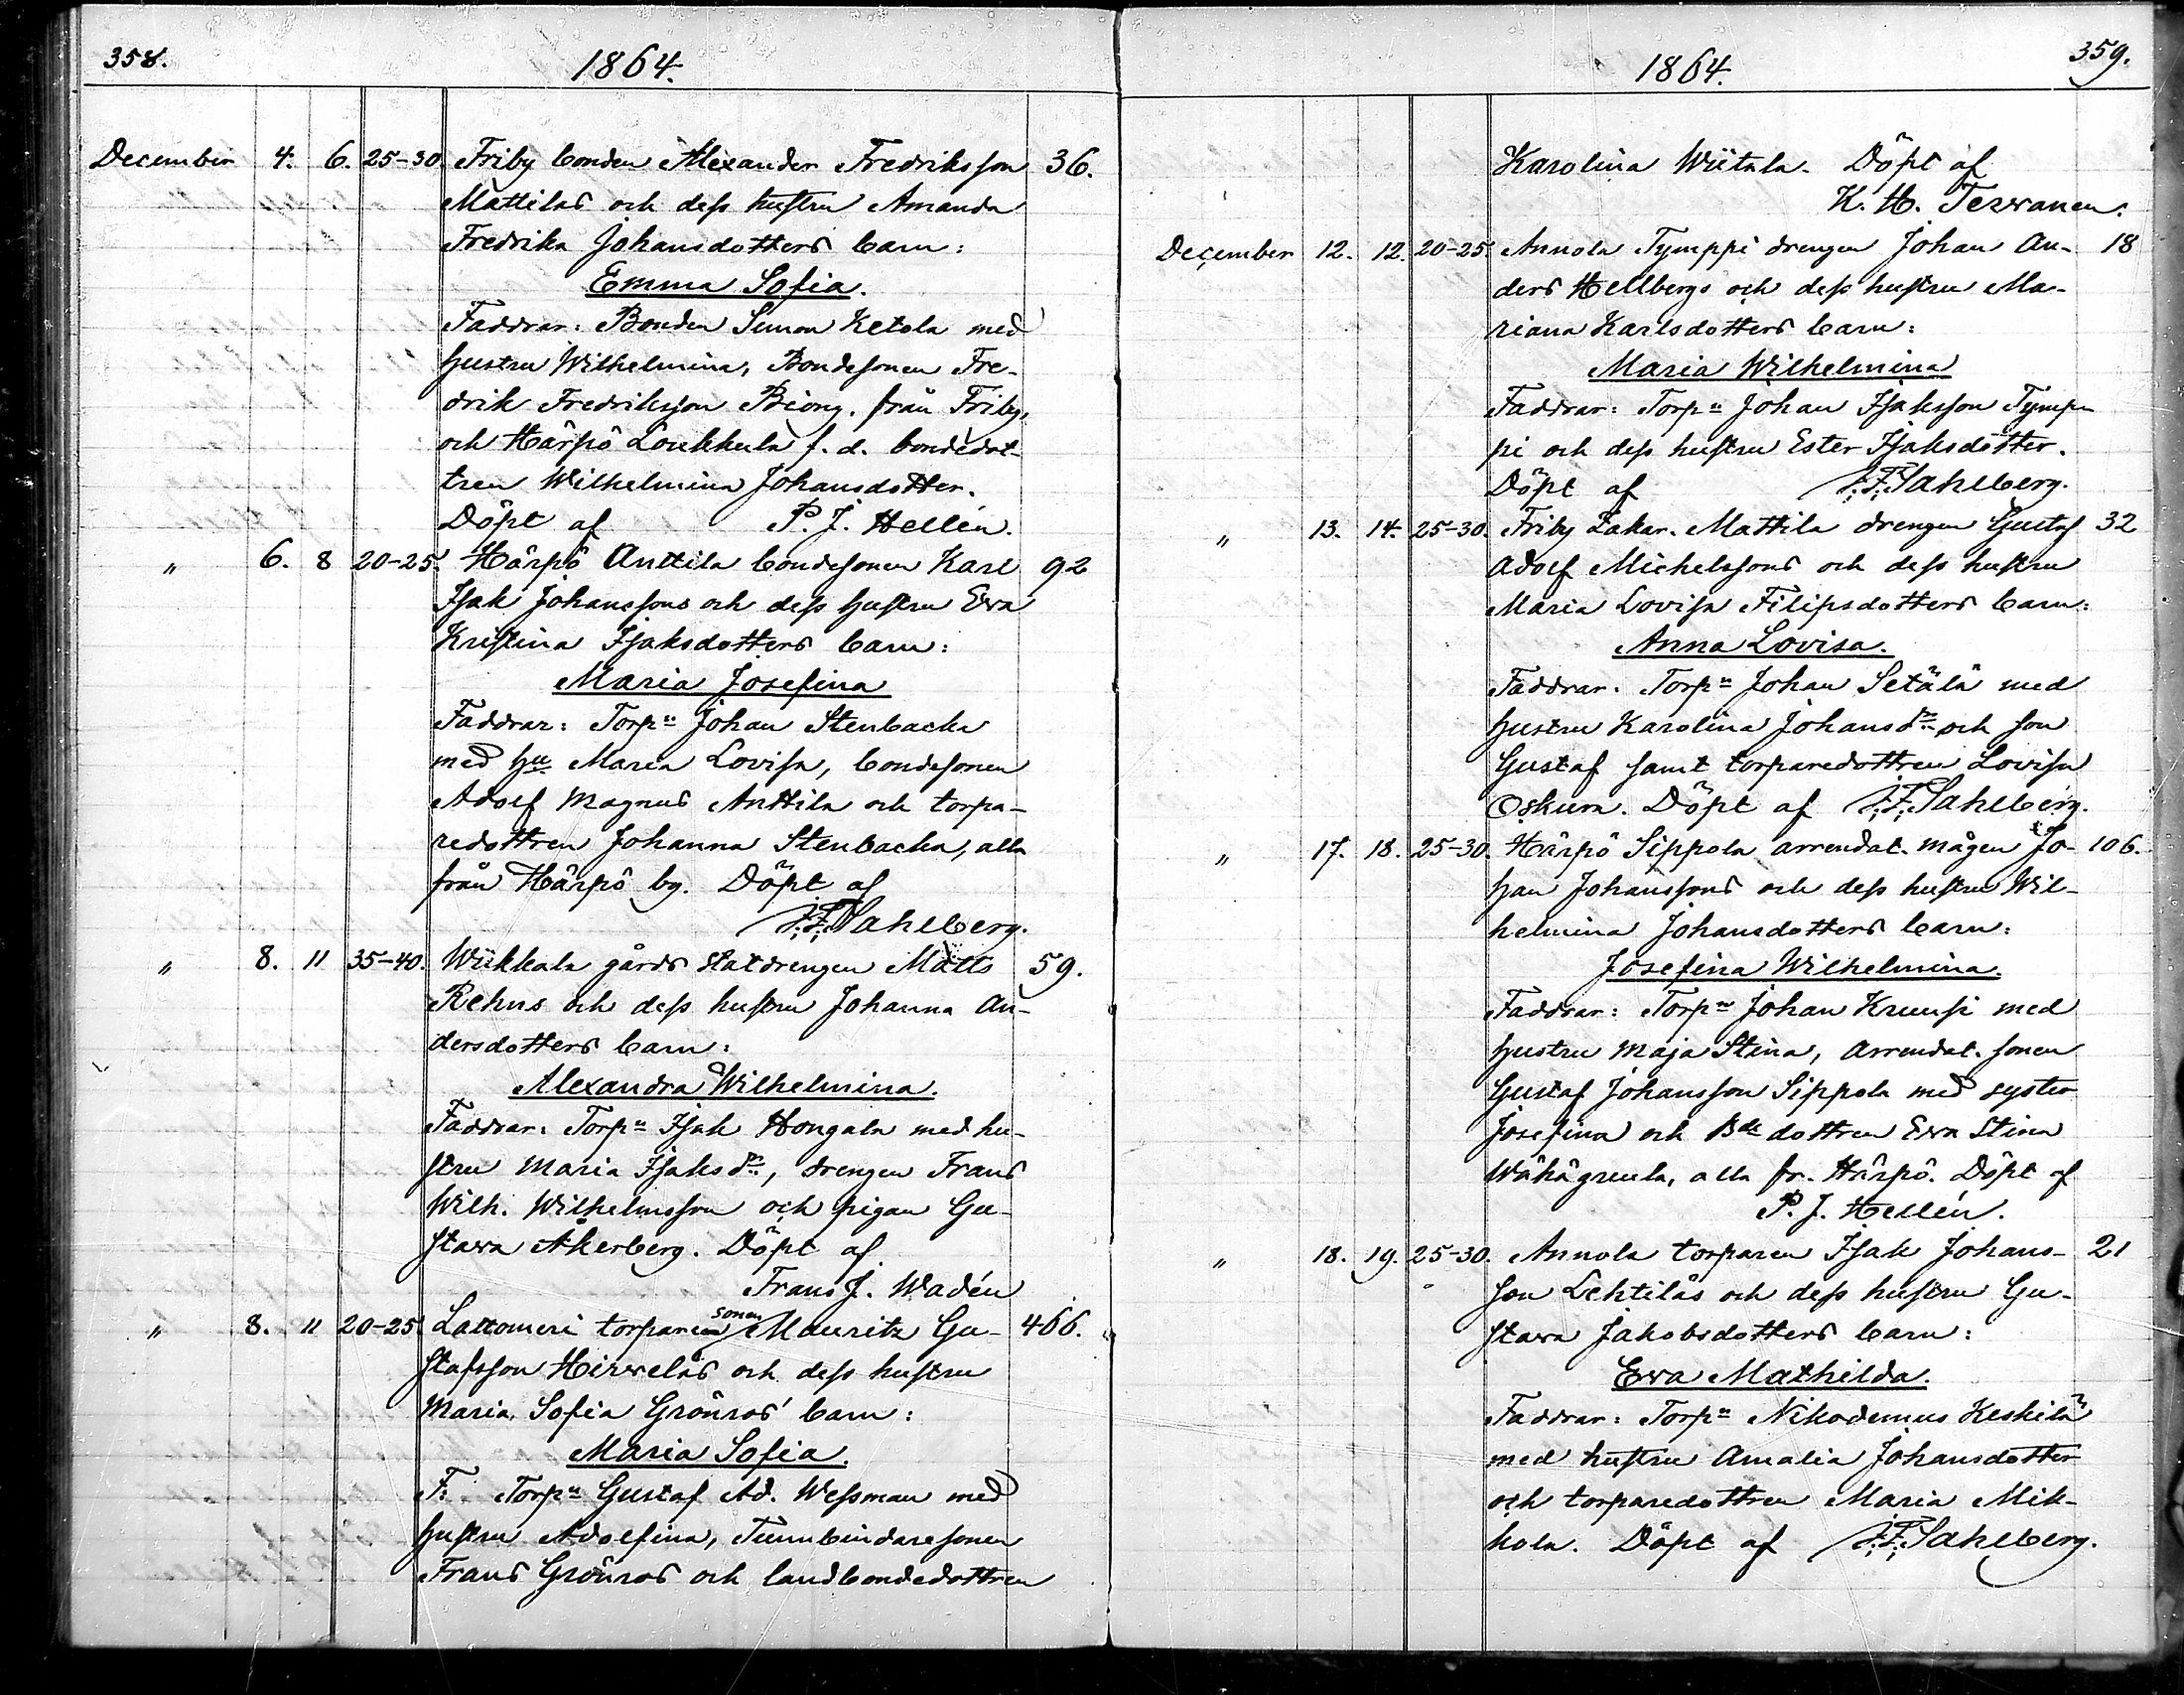 358.
1864.
December 4. 6. 25-30. Friby bonden Alexander Fredriksson 36.
Mattilas och dess hustru Amanda
Fredrika Johansdotters barn:
Emma Sofia.
Faddrar: Bonden Simon Ketola med
hustru Wilhelmina, Bondesonen Fre-
drik Fredriksson Björny. från Friby,
och Hârpö Loukkula f. d. bondedot-
tren Wilhelmina Johansdotter.
Döpt af P. J. Hellén.
" 6. 8 20-25. Hârpö Anttila bondesonen Karl 92
Isak Johanssons och dess hustru Eva
Kristina Isaksdotters barn:
Maria Josefina
Faddrar: Torpn Johan Stenbacka
med hu Maria Lovisa, bondesonen
Adolf Magnus Anttila och torpa-
redottren Johanna Stenbacka, alla
från Hârpö by. Döpt af
J. F. Sahlberg.
" 8. 11 35-40. Wiikkala gårds statdrengen Matts 59.
Rehns och dess hustru Johanna An-
dersdotters barn:
Alexandra Wilhelmina.
Faddrar. Torpn Isak Hongala med hu-
stru Maria Isaksdr, drengen Frans
Wilh. Wilhelmsson och pigan Gu-
stava Åkerberg. Döpt af
Frans J. Wadén
" 8. 11 20-25 Lattomeri torparesonen Mauritz Gu- 466.
stafsson Hirvelâs och dess hustru
Maria Sofia Grönros' barn:
Maria Sofia.
F: Torpn Gustaf Ad. Wessman med
hustru Adolfina, Tunnbindaresonen
Frans Grönros och landbondedottren
359.
1864.
Karolina Wiitala. Döpt af
K. H. Terwanen.
December 12. 12. 20-25. Annola Tymppi drengen Johan An- 18
ders Hellbergs och dess hustru Ma-
riana Karlsdotters barn:
Maria Wilhelmina
Faddrar: Torpn Johan Isaksson Tymp-
pi och dess hustru Ester Isaksdotter.
Döpt af J. F. Sahlberg.
" 13. 14. 25-30. Friby Zakar. Mattila drengen Gustaf 32
Adolf Michelssons och dess hustru
Maria Lovisa Filipsdotters barn:
Anna Lovisa.
Faddrar. Torpn Johan Setälä med
hustru Karolina Johansdr och son
Gustaf samt torparedottren Lovisa
Oskura. Döpt af J. F. Sahlberg.
" 17. 18. 25-30. Hârpö Sippola arrendat. mågen Jo- 106.
han Johanssons och dess hustru Wil-
helmina Johansdotters barn:
Josefina Wilhelmina.
Faddrar: Torpn Johan Kruusi med
hustru Maja Stina, Arrendat. sonen
Gustaf Johansson Sippola med syster
Josefina och Bde dottren Eva Stina
Wähägreula, alla fr. Hârpö. Döpt af
P. J. Hellén.
" 18. 19. 25-30. Annola torparen Isak Johans- 21
son Lehtiläs och dess hustru Gu-
stava Jakobsdotters barn:
Eva Mathilda.
Faddrar: Torpn Nikodemus Keskilä
med hustru Amalia Johansdotter
och torparedottren Maria Mik-
kola. Döpt af J. F. Sahlberg.